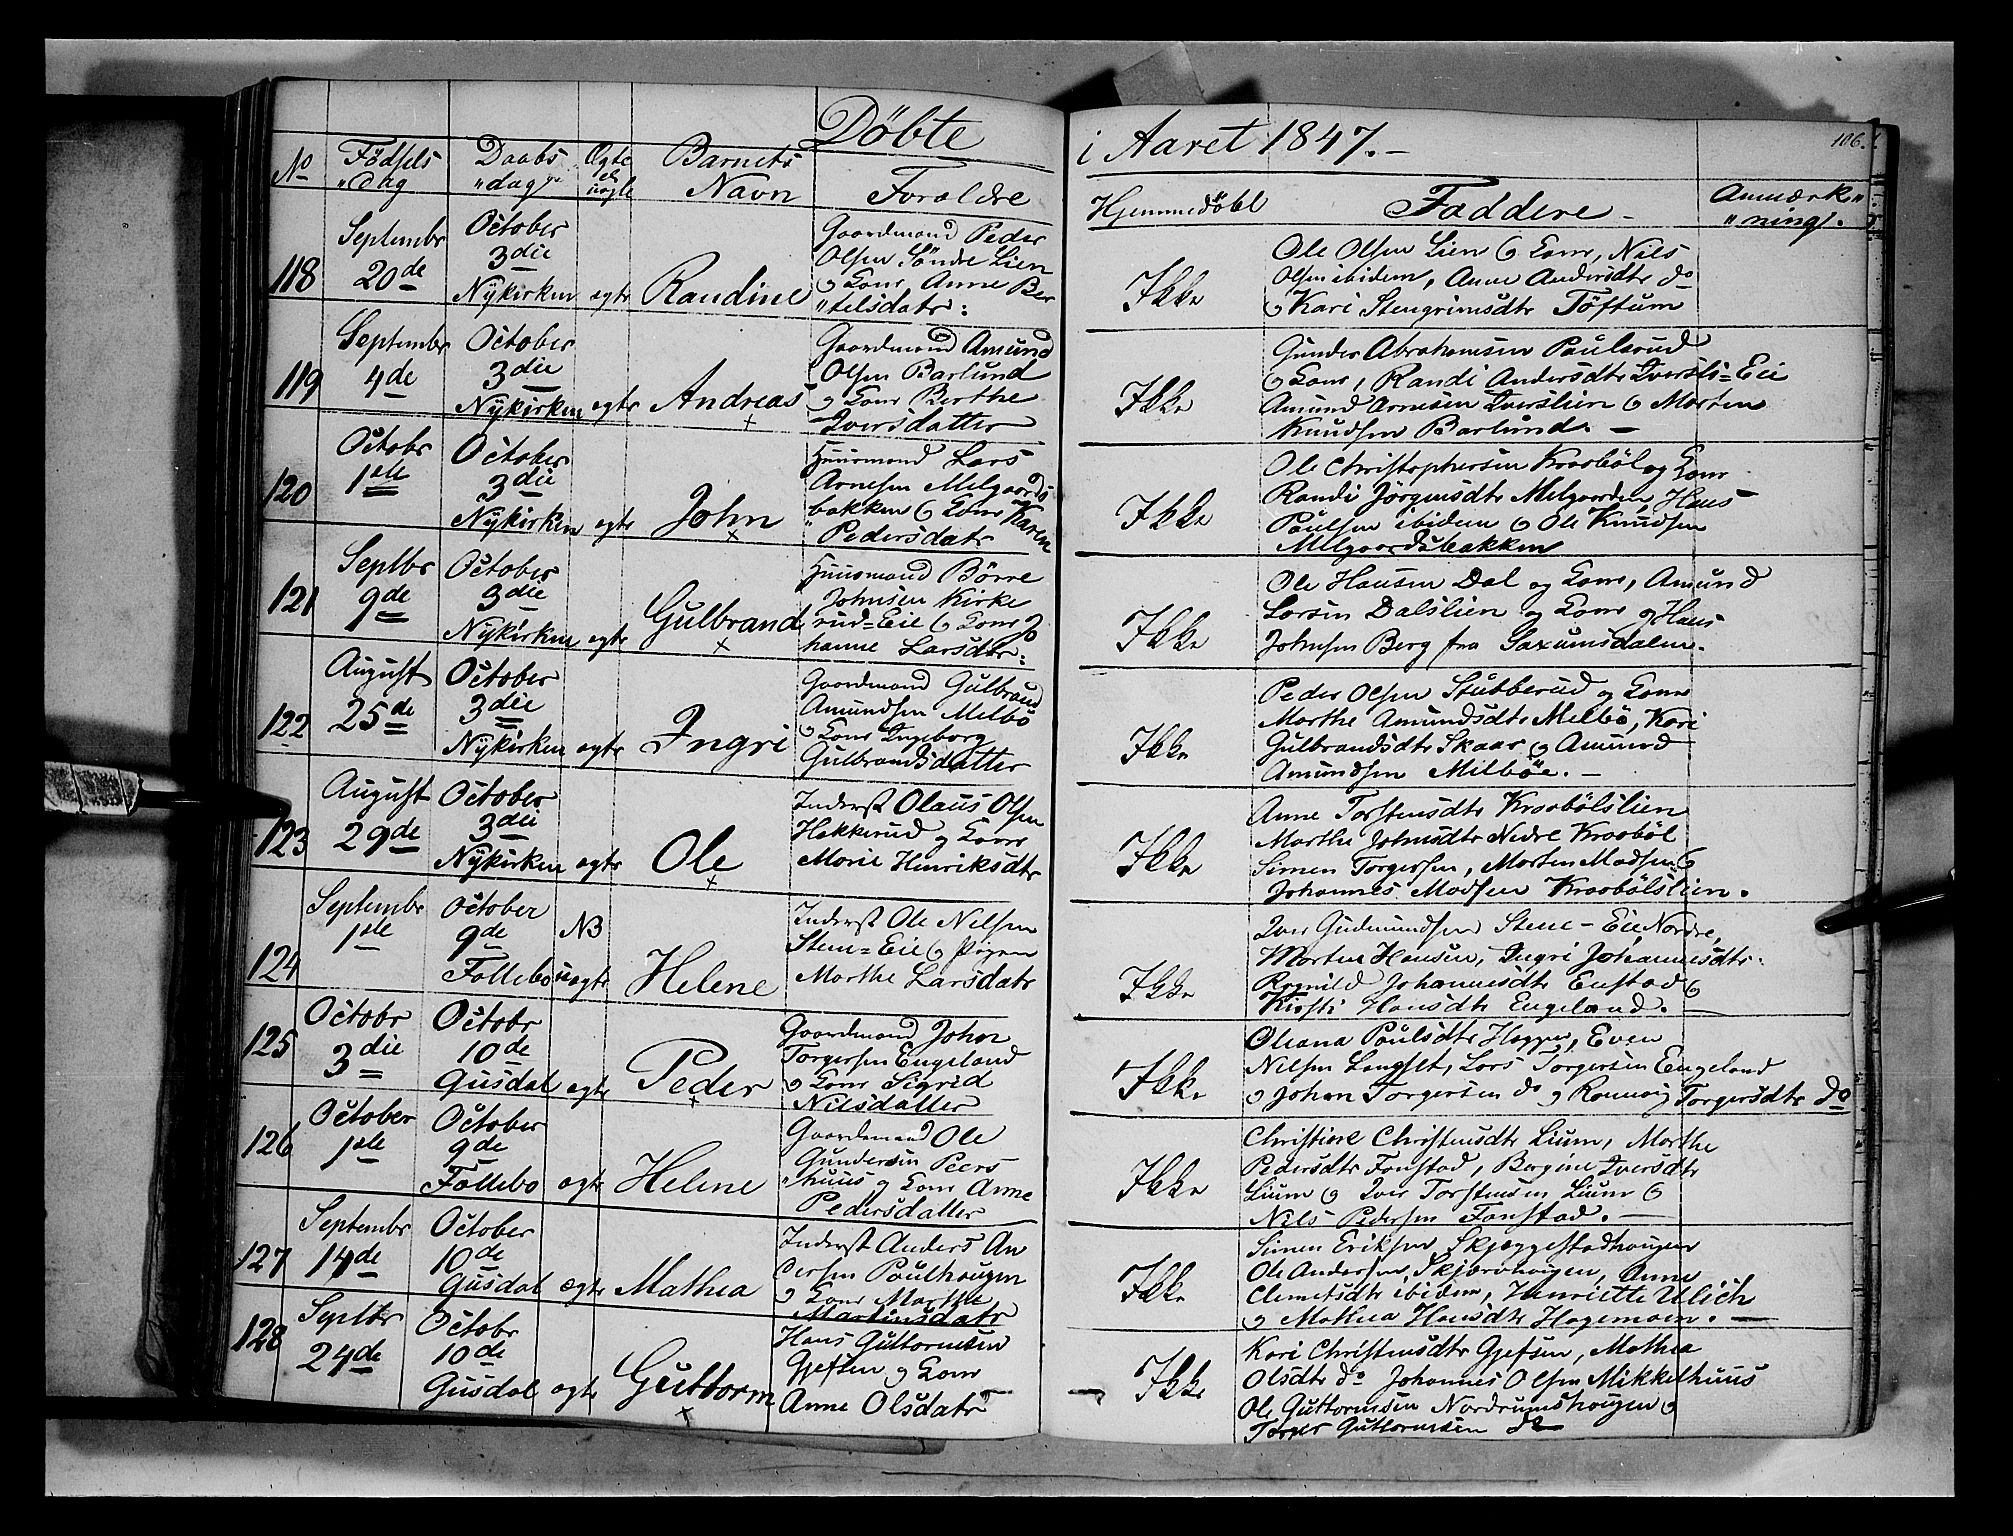 Døbte i Aaret 1847.-
106.
No Fødsels Daabs Ægte Barnets
"dag "dag el uægte Navn Forældre Hjemmedøbt Faddere - Anmærk"
"ning.
118 Septembr 20de October 3die Nykirken ægte Randine
Gaardmand Peder
Olsen Söndre Lien
og Kone, Anne Ber
"telsdatr:
Ikke
Ole Olsen Lien og Kone, Nils
Olsen ibidem, Anne Andersdtr do
og Kari Stengrimsdtr Töftum
119 Septembr 4de October 3die Nykirken ægte Andreas
Gaardmand Amund
Olsen Barlund
og Kone Berthe
Iversdatter
Ikke
Gunder Abrahamsen Paulsrud
og Kone, Randi Andersdtr Iversli=Eie
Amund Arnesen Iverslien og Morten
Knudsen Barlund. -
120 Octobr 1ste October 3die Nykirken ægte John
Huusmand Lars
Arnesen Melgaards
bakken og Kone Karen
Pedersdatr
Ikke
Ole Christophersen Kraabøl og Kone
Randi Jörgensdtr Melgaarden, Hans
Paulsen ibidem og Ole Knudsen
Melgaardsbakken
121 Septbr 9de October 3die Nykirken ægte Gulbrand
Huusmand Börre
Johnsen Kirke
rud=Eie og Kone Jo
hanne Larsdtr:
Ikke
Ole Hansen Dal og Kone, Amund
Larsen Dalslien og Kone og Hans
Johnsen Berg fra Saxumsdalen.
122 August 25de October 3die Nykirken ægte Ingri
Gaardmand Gulbrand
Amundsen Melbö
og Kone Ingeborg
Gulbrandsdatter
Ikke
Peder Olsen Stubberud og Kone
Marthe Amundsdtr Melbö, Kari
Gulbrandsdtr Skaar og Amund
Amundsen Melböe. -
123 August 29de October 3die Nykirken ægte Ole
Inderst Olaus Olsen
Hakkerud og Kone
Marie Henriksdtr
Ikke
Anne Torstensdtr Kraabölslien
Marthe Johnsdtr Nedre Kraaböl
Simen Torgersen, Morten Madsen og
Johannes Madsen Kraabölslien.
124 Septembr 1ste October 9de Follebo NB uægte Helene
Inderst Ole Nilsen
Stene=Eie og Pigen
Marthe Larsdatr
Ikke
Iver Gudmundsen Stene-Eie Nordre,
Morten Hansen, Ingri Johannesdtr.
Ragnild Johannesdtr Enstad og
Kirsti Hansdtr Engeland. -
125 Octobr 3die Octobr 10de Gusdal ægte Peder
Gaardmand Johan
Torgersen Engeland
og Kone Sigrid
Nilsdatter
Ikke
Oliana Paulsdtr Hoppe, Even
Nilsen Langset, Lars Torgersen Engeland
og Johan Torgersen do og Rønnoug Torgersdtr do
126 October 1ste October 9de Follebo ægte Helene
Gaardmand Ole
Gundersen Peers
"huus og Kone Anne
Pedersdatter
Ikke
Christine Christensdtr Lium, Marthe
Pedersdtr Fonstad, Bergine Iversdtr
Lium og Iver Torstensen Lium og
Nils Pedersen Fonstad. -
127 Septembr 14de October 10de Gusdal ægte Mathea
Inderst Anders An
dersen Paulhougen
og Kone Marthe
Martinusdatr
Ikke
Simen Eriksen Skjeggestadhougen
Ole Andersen Skjærvhougen, Anne
Clemetsdtr ibidem, Henriette Ulich
og Mathea Hansdtr Hagemoen. -
128 Septbr 24de Octobr 10de Gusdal ægte Guttorm
Hans Guttormsen
Gjefsen og Kone
Anne Olsdatr
Ikke
Kari Christensdtr Gjefsen, Mathea
Olsdtr do Johannes Olsen Mikkelhuus
Ole Guttormsen Nordrumshougen og
Torger Guttormsen do